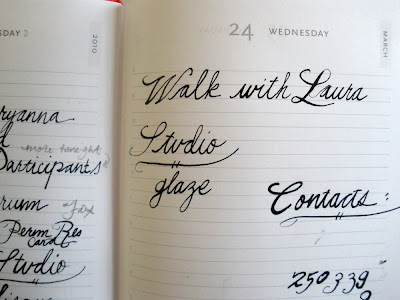 2010
ryanna
more tonight
Participants
Perm Res
Card
Studio
24 WEDNESDAY
MARCH
Walk with Laura
Studio
glaze
Contacts:
250 339